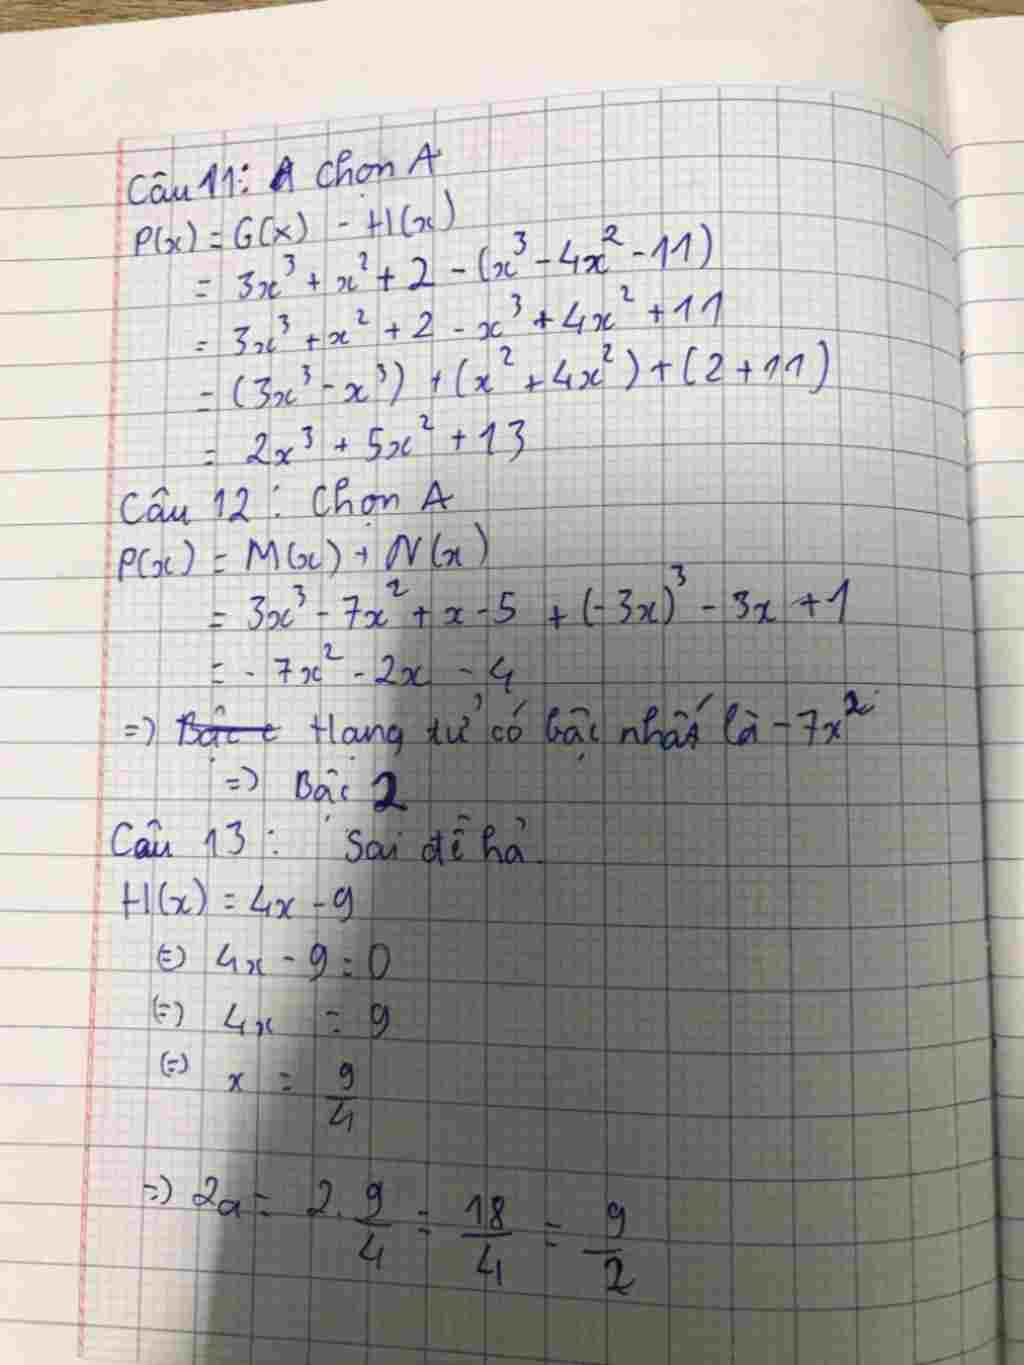 Câu 11: A Chọn A
P(x) = G(x) - H(x)
= 3x³ + x² + 2 - (x³ - 4x² - 11)
= 3x³ + x² + 2 - x³ + 4x² + 11
= (3x³ - x³) + (x² + 4x²) + (2 + 11)
= 2x³ + 5x² + 13
Câu 12 : Chọn A
P(x) = M(x) + N(x)
= 3x³ - 7x² + x - 5 + (-3x)³ - 3x + 1
= - 7x² - 2x - 4
=) Hạng tử có bậc nhất là - 7x²
=) Bậc 2
Câu 13 : Sai đề hả.
H(x) = 4x - 9
(=) 4x - 9 = 0
(=) 4x = 9
(=) x = 9/4
=) 2a = 2. 9/4 = 18/4 = 9/2